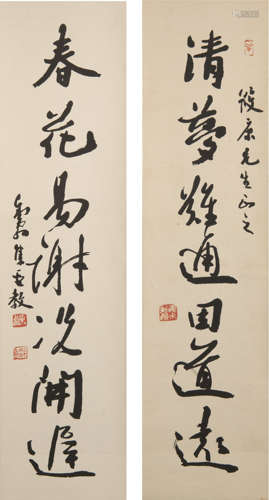 筱康先生正之
清夢難通因道遠
春花易謝況開遲
集玉教